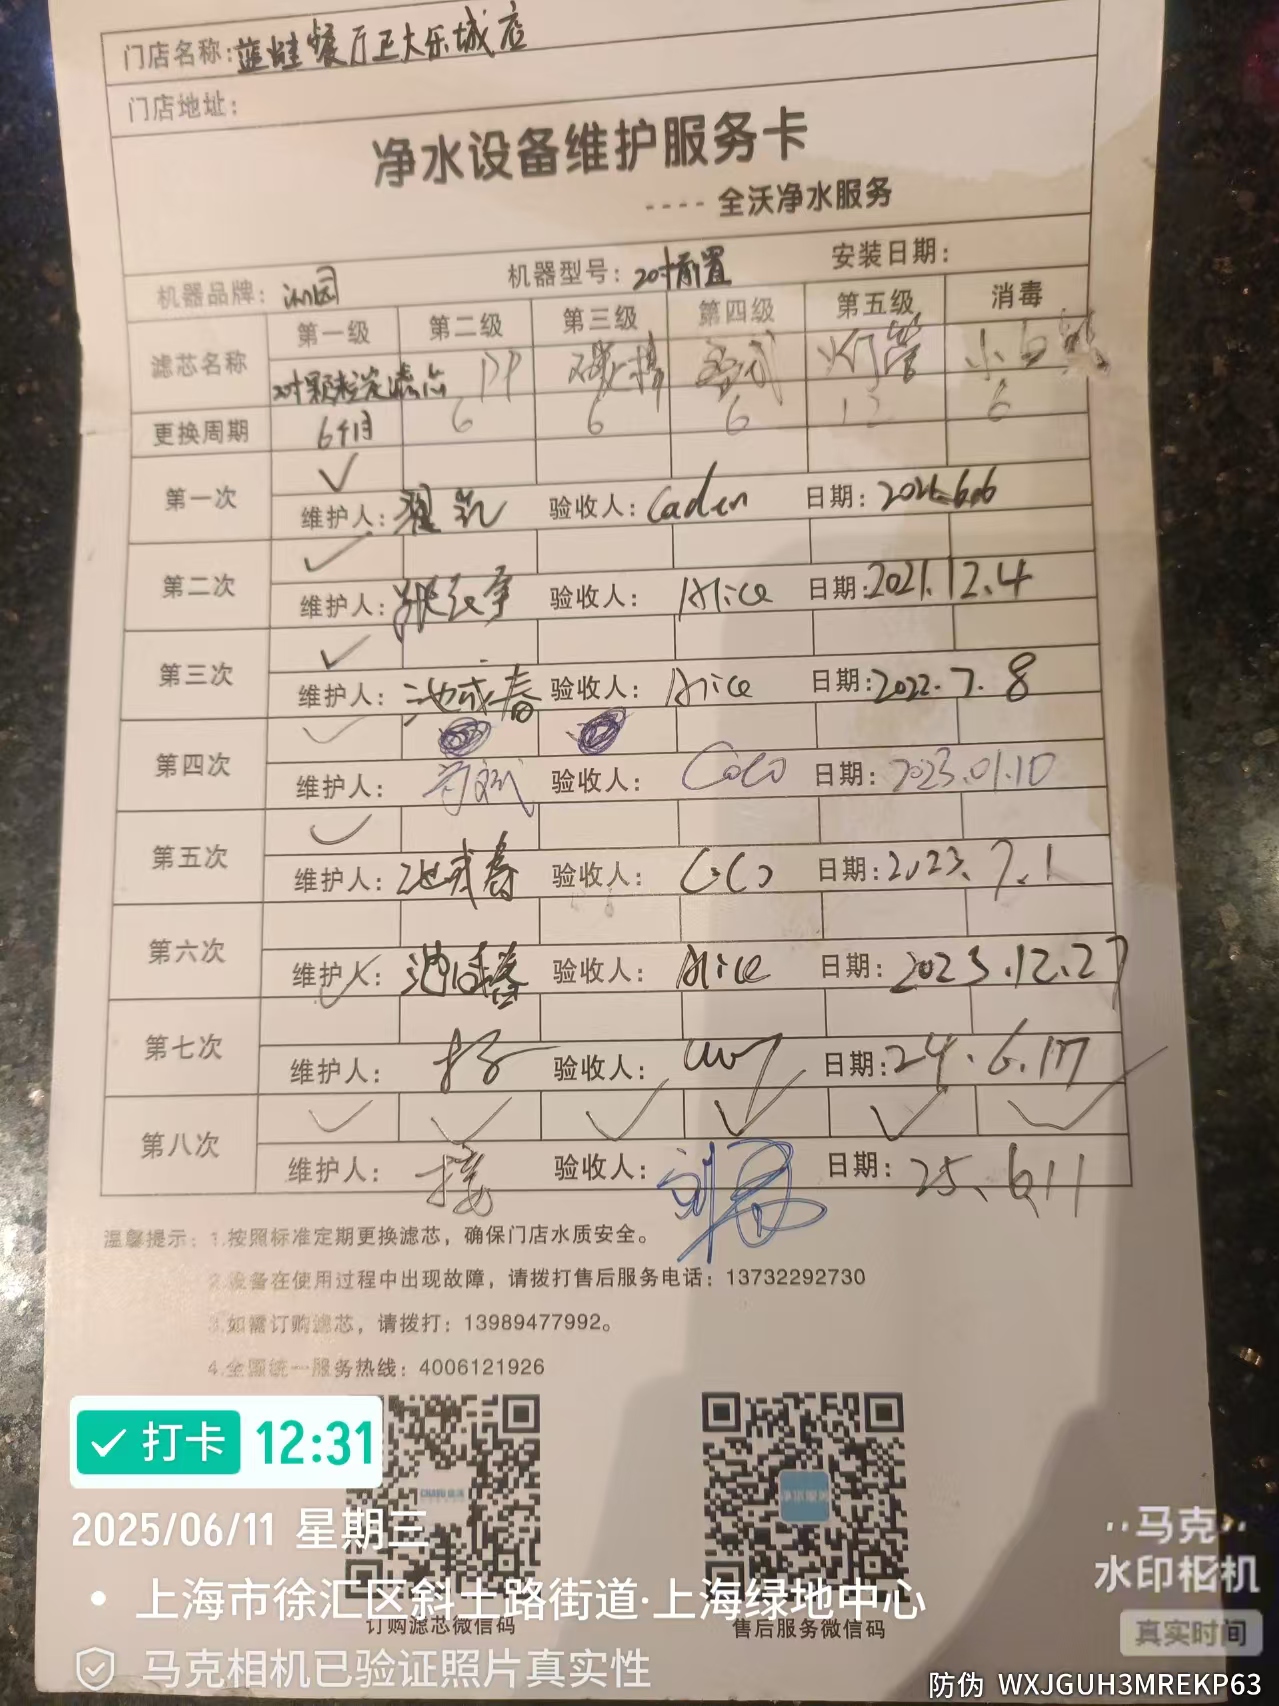 门店名称:蓝蛙餐厅正大乐城店
门店地址:
净水设备维护服务卡
---- 全沃净水服务
机器品牌: 沁园 机器型号: 20寸前置 安装日期:
滤芯名称 第一级 第二级 第三级 第四级 第五级 消毒
20寸颗粒炭滤芯 PP 灯管 小白
更换周期 6个月 6 6 6 12 6
第一次 ✓
维护人: 验收人: Caden 日期: 2021.6.6
第二次 ✓
维护人: 验收人: Alice 日期:2021.12.4
第三次 ✓
维护人: 池成春 验收人: Alice 日期:2022.7.8
第四次 ✓
维护人: 验收人: CoCo 日期: 2023.01.10
第五次 ✓
维护人: 池成春 验收人: CoCo 日期:2023.7.1
第六次 ✓
维护人: 池成春 验收人: Alice 日期: 2023.12.27
第七次
维护人: 验收人: 日期:24.6.17
第八次 ✓ ✓ ✓ ✓ ✓ ✓
维护人: 验收人: 日期: 25.6.11
温馨提示: 1.按照标准定期更换滤芯，确保门店水质安全。
2.设备在使用过程中出现故障，请拨打售后服务电话：13732292730
3.如需订购滤芯，请拨打：13989477992。
4.全国统一服务热线：4006121926
✓ 打卡 12:31
2025/06/11 星期三
• 上海市徐汇区斜土路街道·上海绿地中心
订购滤芯微信码
净水服务
售后服务微信码
马克相机已验证照片真实性
马克
水印相机
真实时间
防伪 WXJGUH3MREKP63